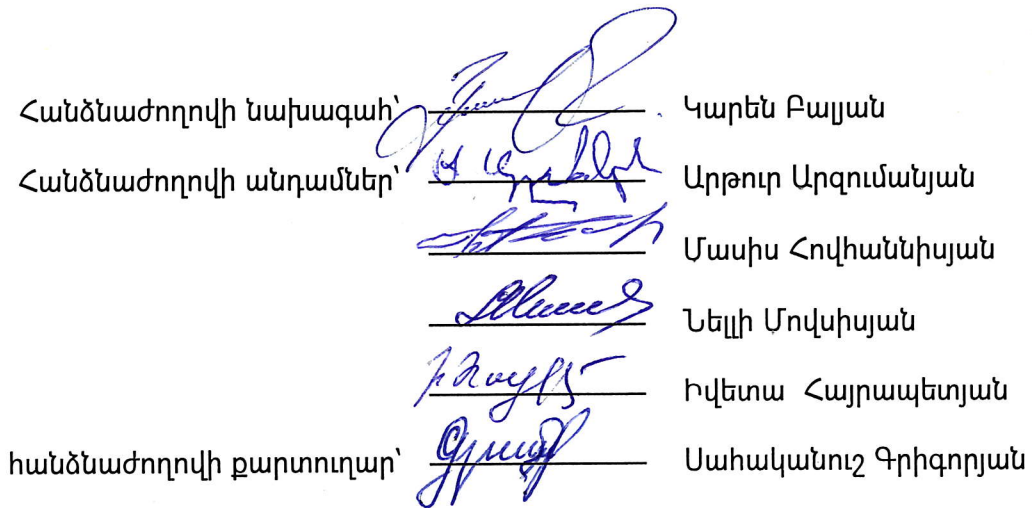 Հանձնաժողովի նախագահ՝ Կարեն Բալյան
Հանձնաժողովի անդամներ՝ Արթուր Արզումանյան
Մասիս Հովհաննիսյան
Նելլի Մովսիսյան
Իվետա Հայրապետյան
հանձնաժողովի քարտուղար՝ Սահականուշ Գրիգորյան